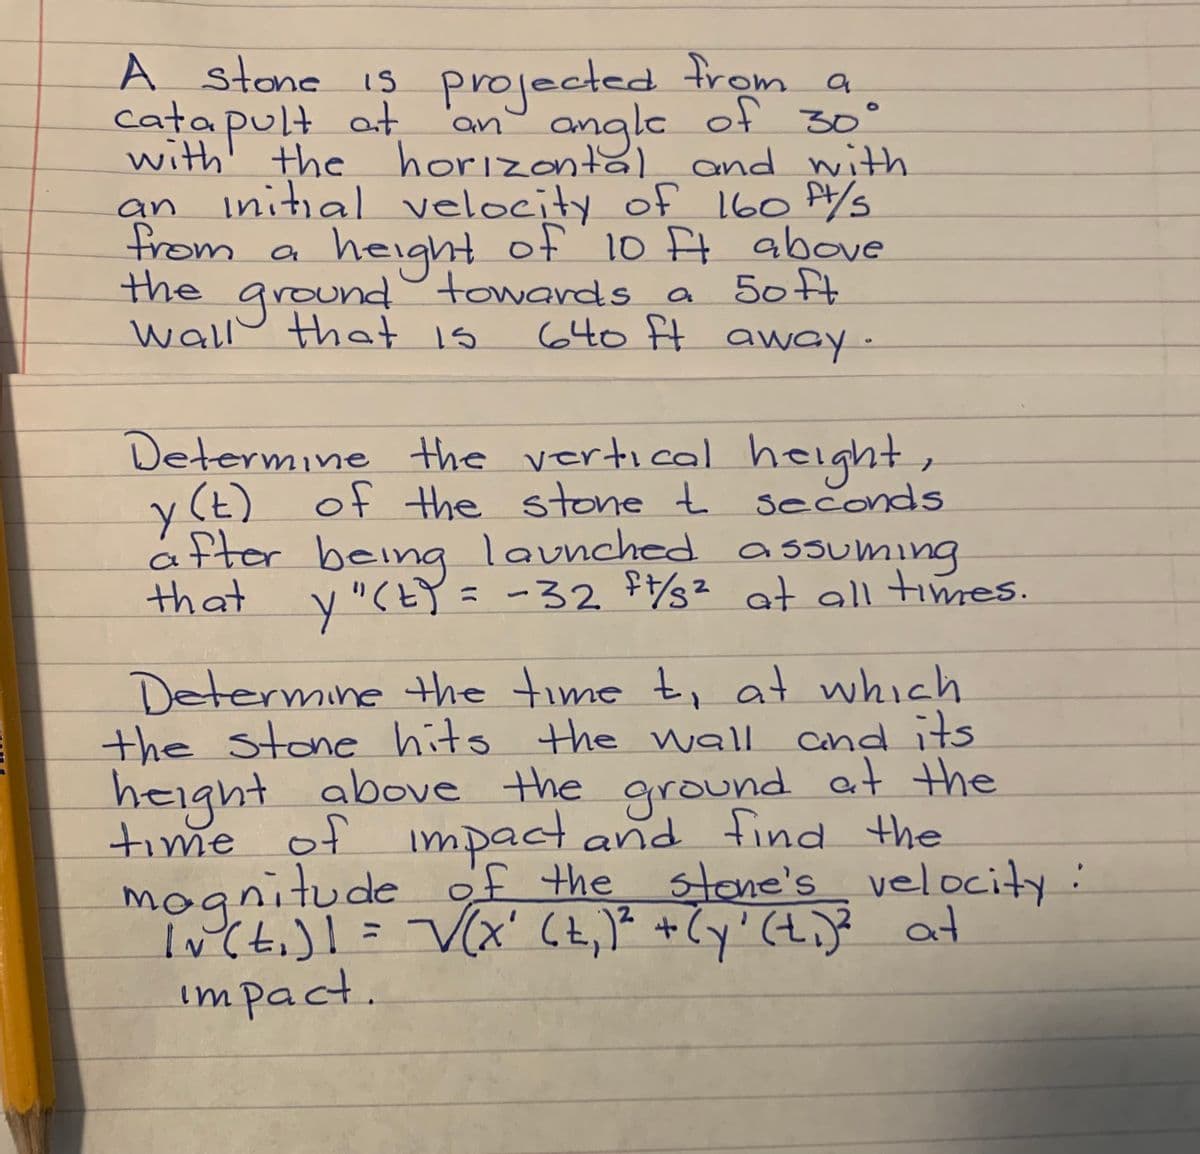 A stone is projected from a
catapult at an angle of 30°
with the horizontal and with
an initial velocity of 160 ft/s
from a height of 10 ft above
the ground towards a 50ft
wall that is 640 ft away.
Determine the vertical height,
y(t) of the stone t seconds
after being launched assuming
that y"(t) = -32 ft/s² at all times.
Determine the time t, at which
the stone hits the wall and its
height above the ground at the
time of impact and find the
magnitude of the stone's velocity:
|v(t₁)| = √(x'(t₁)² + (y'(t₁)² at
impact.